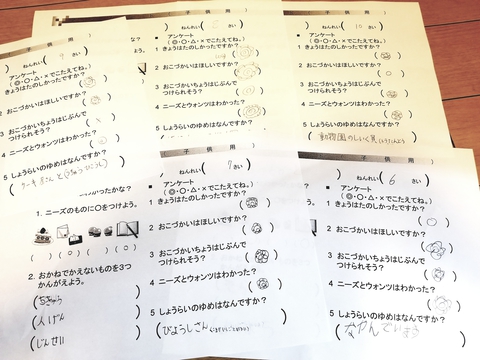 子 供 用 )
) ねんれい( 9 さい
アンケート
(◎・○・△・×でこたえてね。)
きょうはたのしかったですか?
2 おこづかいはほしいですか?
3 おこづかいちょうはじぶんで
つけられそう?
4 ニーズとウォンツはわかった?
5 しょうらいのゆめはなんですか?
子 供 用 )
) ねんれい( さい
■ アンケート
(◎・○・△・×でこたえてね。)
1 きょうはたのしかったですか?
2 おこづかいはほしいですか?
3 おこづかいちょうはじぶんで
つけられそう?
4 ニーズとウォンツはわかった?
5 しょうらいのゆめはなんですか?
子 供 用 )
) ねんれい( 10 さい
■ アンケート
(◎・○・△・×でこたえてね。)
1 きょうはたのしかったですか?
2 おこづかいはほしいですか?
3 おこづかいちょうはじぶんで
つけられそう?
4 ニーズとウォンツはわかった?
5 しょうらいのゆめはなんですか?
動物園のしいく員
かったかな?
1. ニーズのものに○をつけよう。
( ) (○) ( ) ( ) (○)
2. おかねでかえないものを3つ
かんがえよう。
(ちきゅう
(人げん
(じんせい
( 子 供 用 )
ねんれい( 7 さい
■ アンケート
(◎・○・△・×でこたえてね。)
1 きょうはたのしかったですか?
2 おこづかいはほしいですか?
3 おこづかいちょうはじぶんで
つけられそう?
4 ニーズとウォンツはわかった?
5 しょうらいのゆめはなんですか?
( びようしさん
( 子 供 用 )
) ねんれい( 6 さい
■ アンケート
(◎・○・△・×でこたえてね。)
1 きょうはたのしかったですか?
2 おこづかいはほしいですか?
3 おこづかいちょうはじぶんで
つけられそう?
4 ニーズとウォンツはわかった?
5 しょうらいのゆめはなんですか?